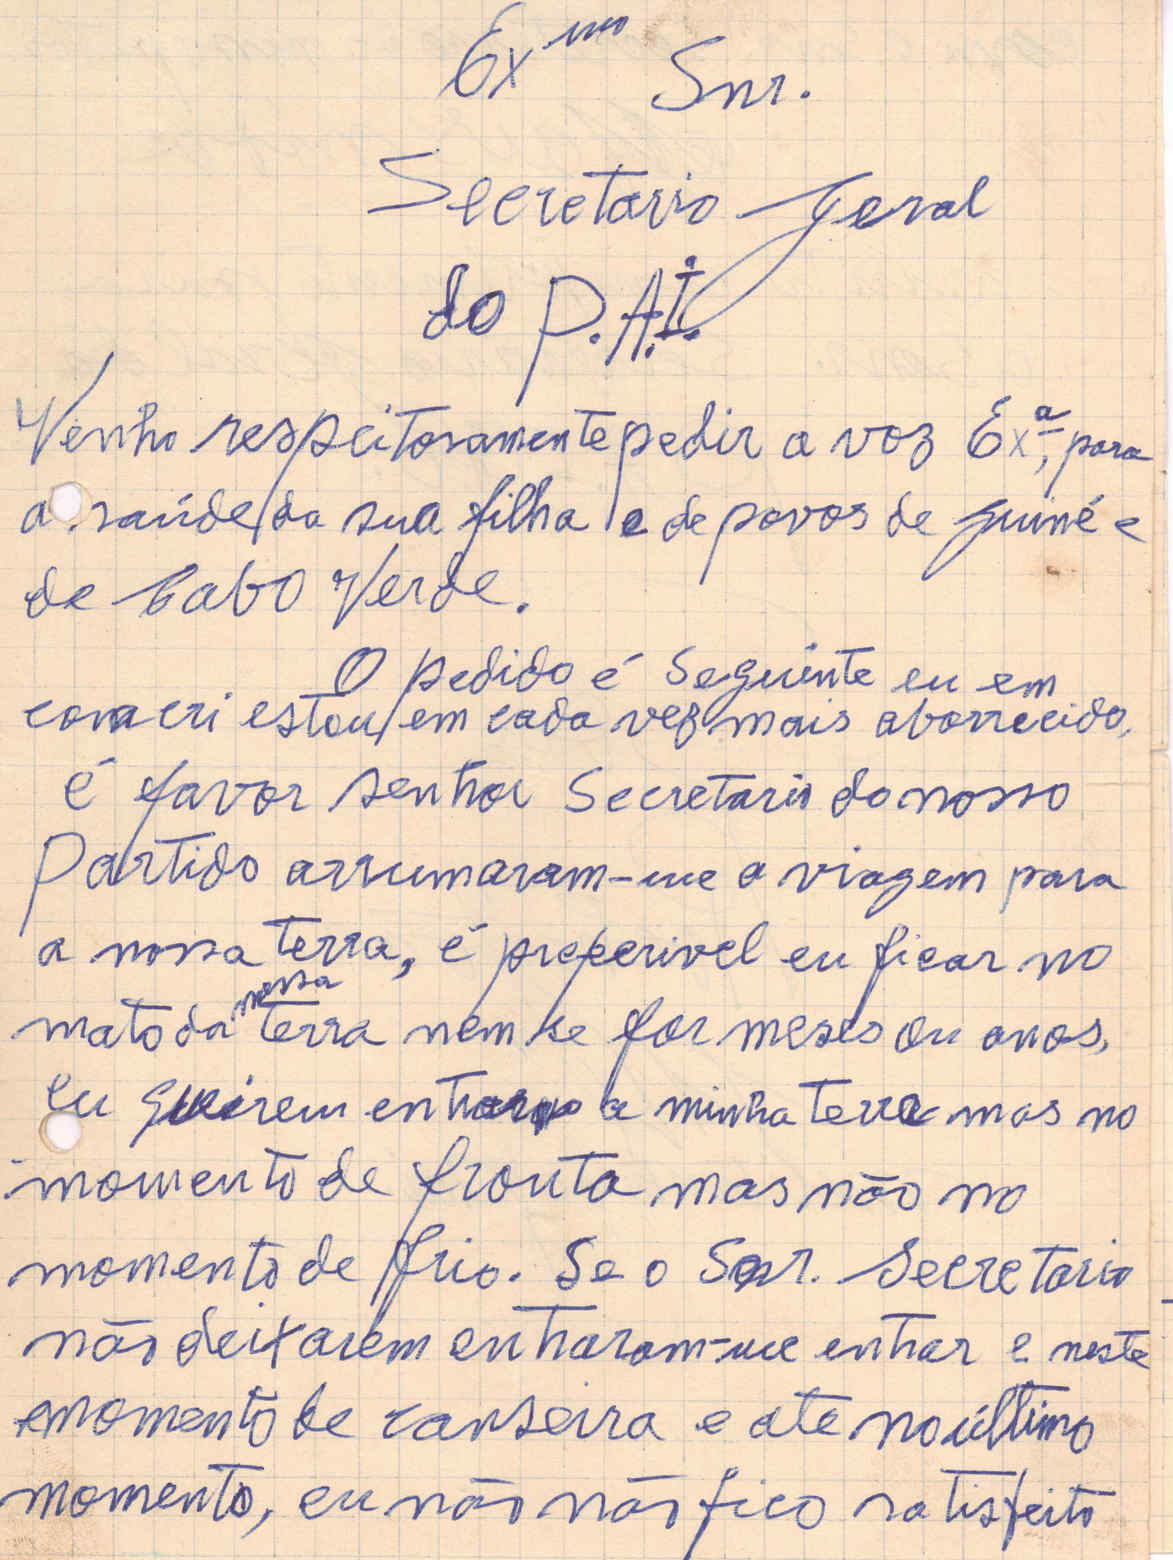 Exmo Snr.
Secretario Geral
do P.A.I.
Venho respeitosamente pedir a voz Exa, para
a saúde da sua filha e de povos de Guiné e
de Cabo Verde.
O pedido é seguinte eu em
conacri estou em cada vez mais aborrecido,
é favor senhor Secretario do nosso
Partido arrumaram-me a viagem para
a nossa terra, é preferivel eu ficar no
mato da nossa terra nem se for meses ou anos,
eu quirem entrar a minha terra mas no
momento de fronta mas não no
momento de frio. Se o Snr. Secretario
não deixarem entraram-me entrar e neste
momento de canseira e ate no último
momento, eu não não fico satisfeito